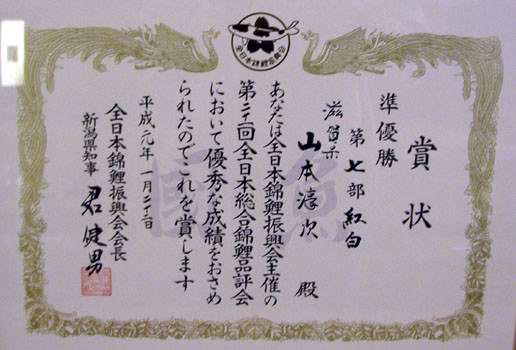 全日本錦鯉振興会
賞状
準優勝
第七部 紅白
滋賀県
山本淳次 殿
あなたは全日本錦鯉振興会主催の
第二十回全日本総合錦鯉品評会
において優秀な成績をおさめ
られたのでこれを賞します
平成元年一月二十二日
全日本錦鯉振興会会長
新潟県知事 君健男